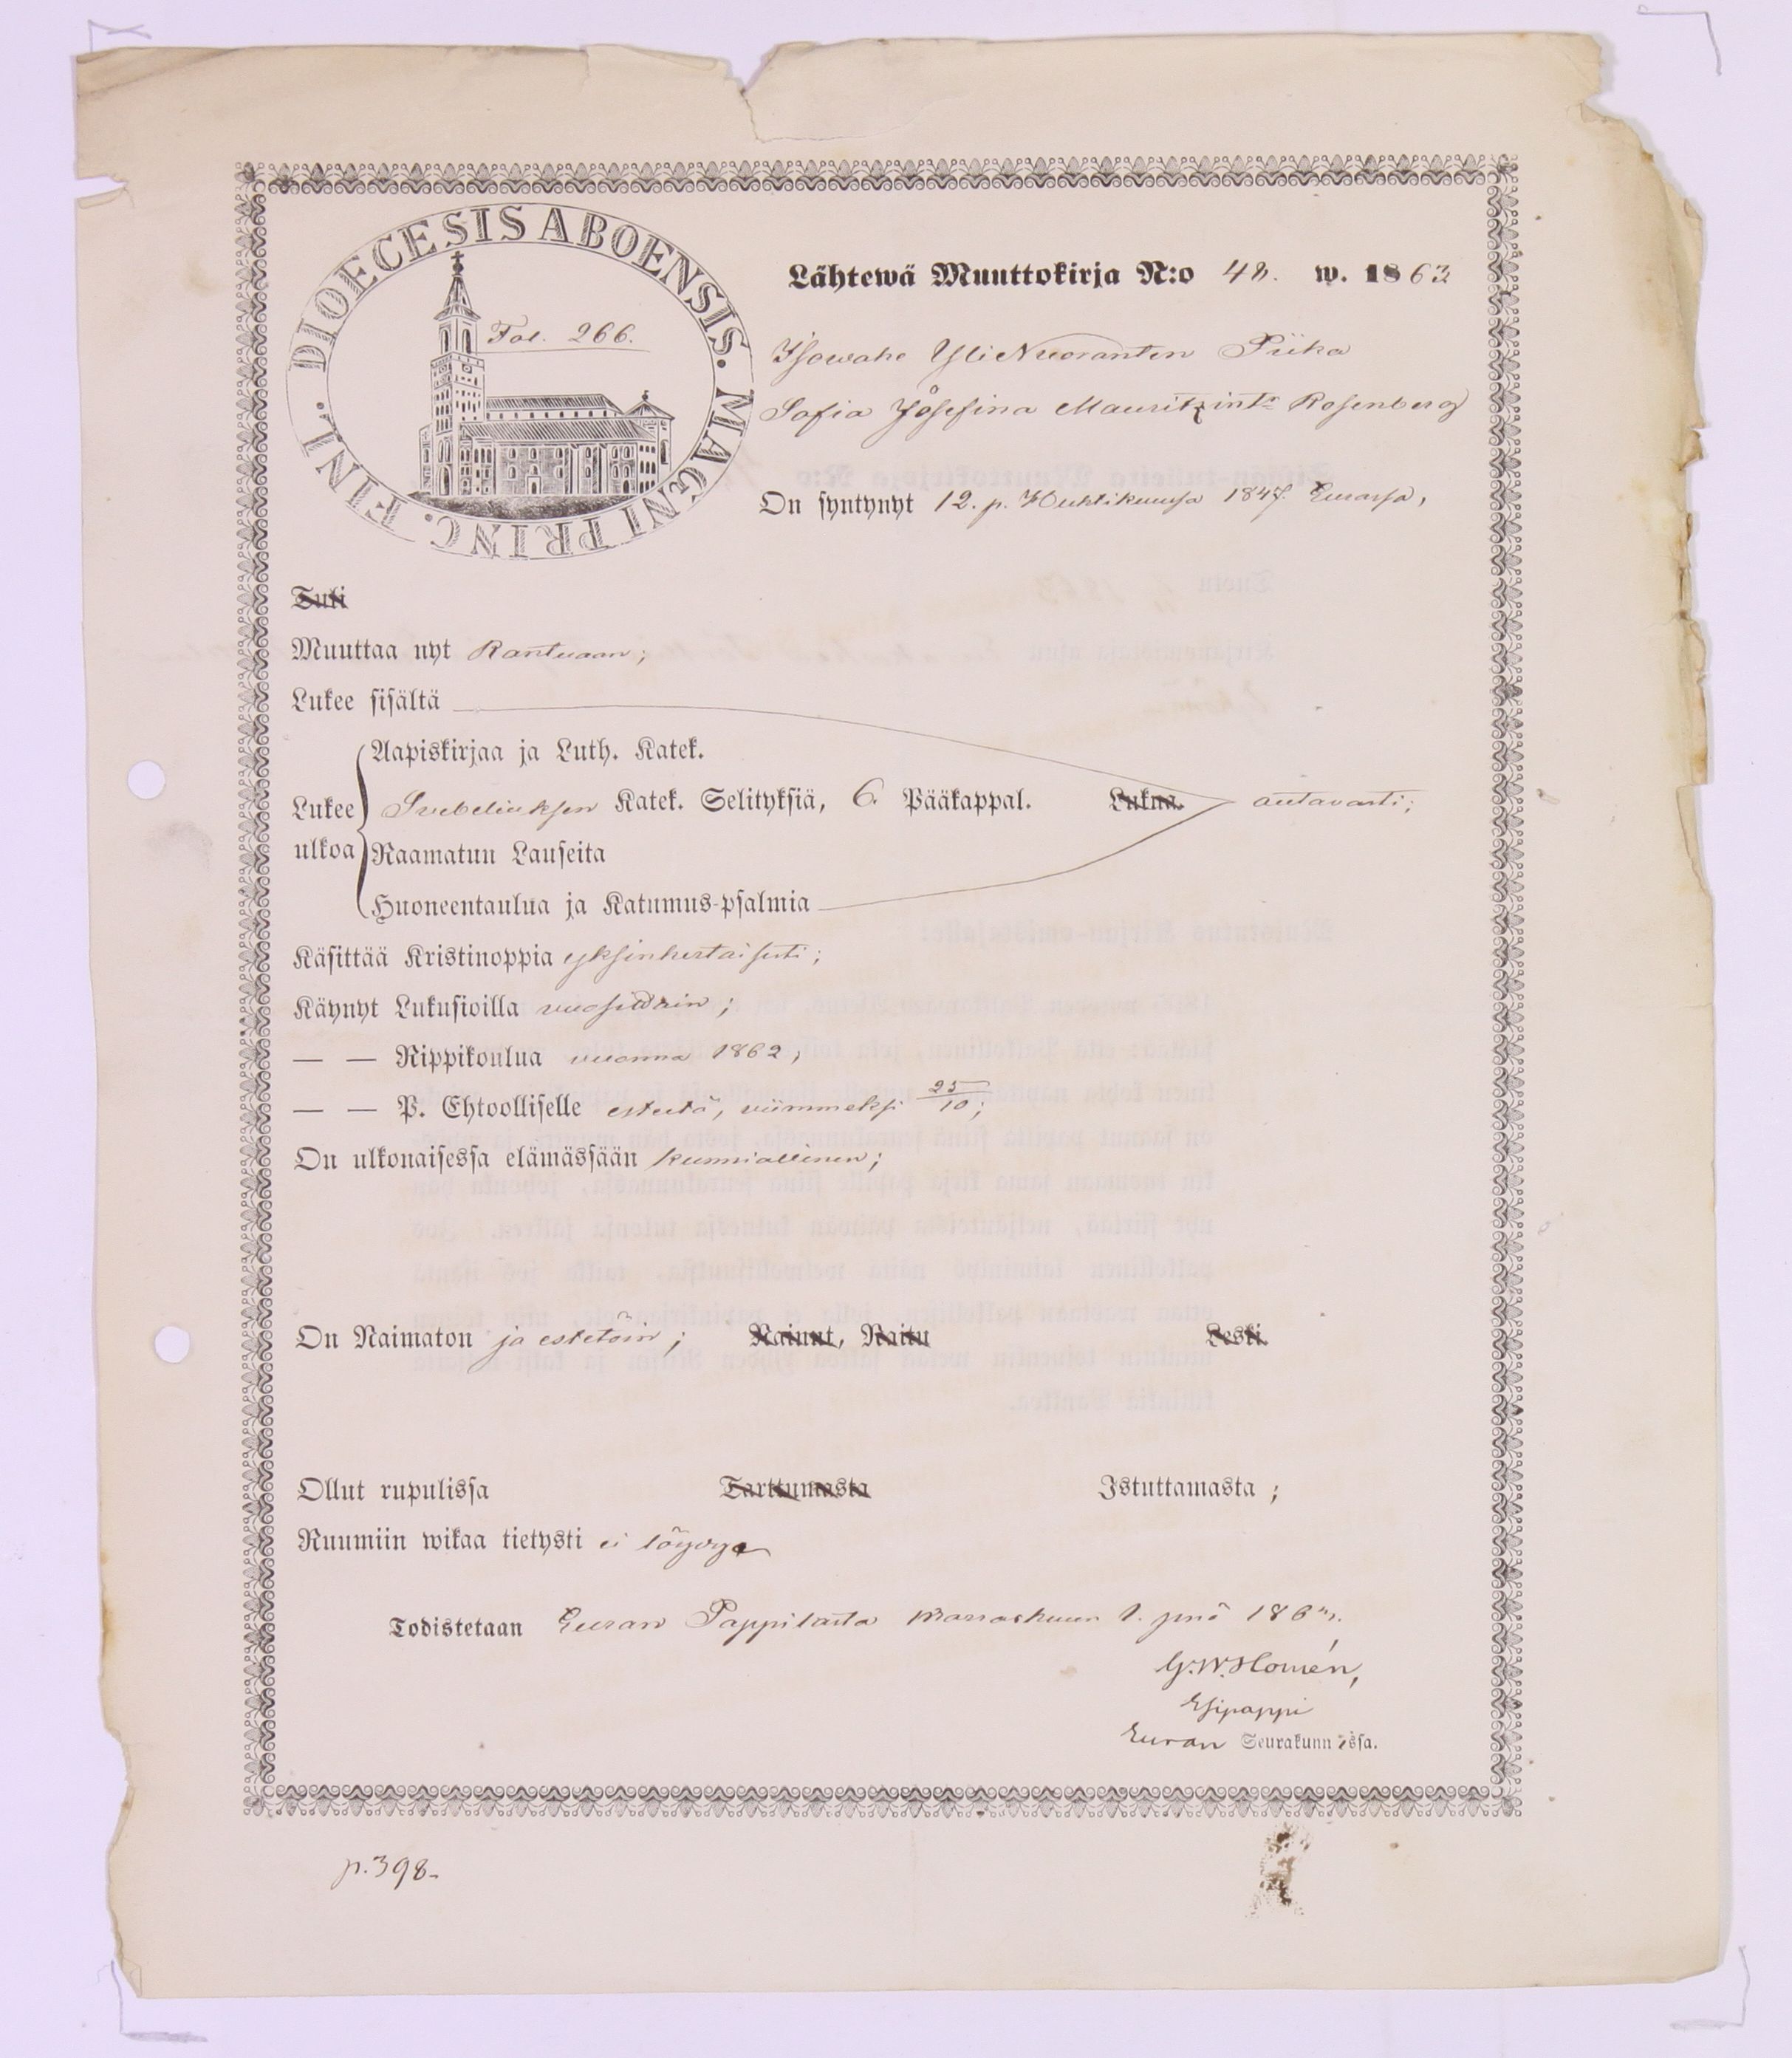 DIOECESIS ABOENSIS. MAGNI PRINC. FINL.
Fol. 266.
Lähtewä Muuttokirja N:o 48. w. 1863
Isowahe Yli Nuoranten Piika
Sofia Josefina Mauritzint. Rosenberg
On syntynyt 12. p. Huhtikuusa 1847 Eurassa,
Tuli
Muuttaa nyt Rantuaan;
Lukee sisältä
Aapiskirjaa ja Luth. Katek.
Lukee Svebeliuksen Katek. Selityksiä, 6. Pääkappal. Lukua. autavasti;
ulkoa Raamatun Lauseita
Huoneentaulua ja Katumus-psalmia
Käsittää Kristinoppia yksinkertaisesti;
Käynyt Lukusioilla vuosittain;
— — Rippikoulua vuonna 1862,
— — P. Ehtoolliselle estetä, viimmeksi 25/10;
On ulkonaisessa elämässään kunniallinen;
On Naimaton ja estetöin; Nainut, Naitu Leski.
Ollut rupulissa Tarttumasta Istuttamasta;
Ruumiin wikaa tietysti ei löydy
Todistetaan Euran Pappilasta Marraskuun 1. pnä 1863.
G. W. Homén,
Esipappi
Euran Seurakunnissa.
p. 398-